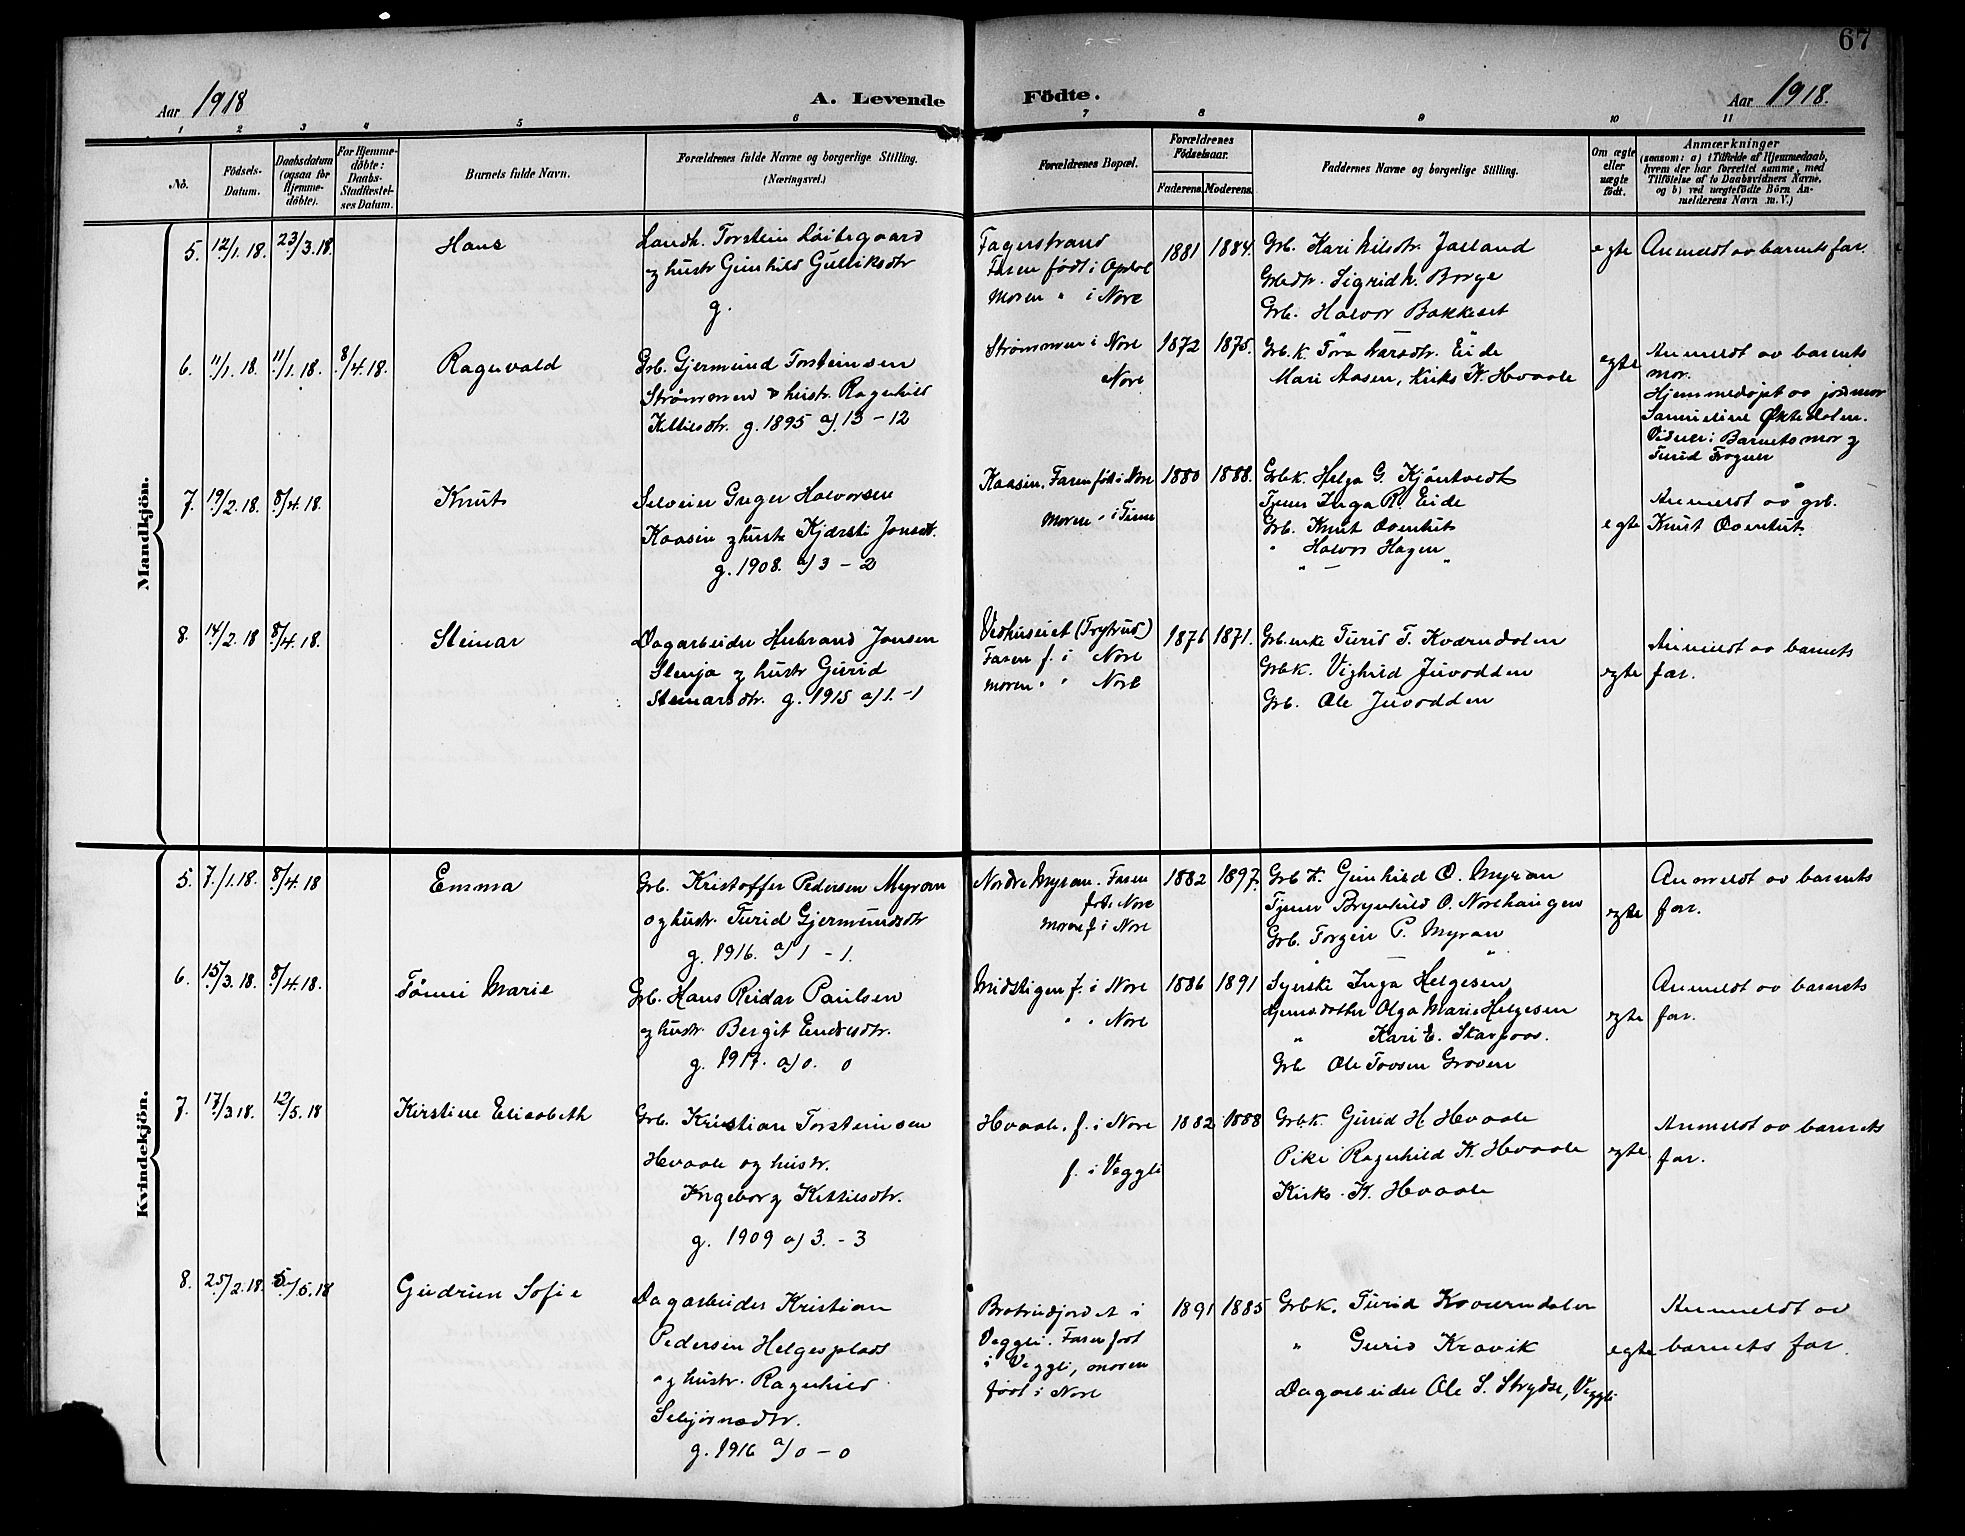 67
Aar 1918
A. Levende Födte.
Aar 1918.
1 2 3 4 5 6 7 8 9 10 11
No.
Födsels-Datum.
Daabsdatum (ogsaa for Hjemmedöbte).
For Hjemmedöbte: Daabs-Stadfæstelses Datum.
Barnets fulde Navn.
Forældrenes fulde Navne og borgerlige Stilling.
(Næringsvei.)
Forældrenes Bopæl.
Forældrenes Födselsaar.
Faderens. Moderens.
Faddernes Navne og borgerlige Stilling.
Om ægte eller uægte födt.
Anmærkninger
(saasom: a) i Tilfælde af Hjemmedaab,
hvem der har forrettet samme, med
Tilföielse af to Daabsvidners Navne,
og b) ved uægtefödte Börn An-
melderens Navn m. V.)
Mandkjön.
5. 12/1. 18. 23/3. 18. Hans
Landh. Torstein
og hustr Gunhild Gulliksdtr
g.
Fagerstrand
Faren født i Opdal
moren " i Nore
1881 1884.
Grb. Kari Nilsdtr. Jalland
Grbdtr. Sigrid K. Borge
Grb. Halvor Bakkeset
egte
Anmeldt av barnets far.
6. 11/1. 18. 11/1. 18. 8/4. 18. Ragnvald
Grb. Gjermund Torsteinsen
Strømmen & hustr. Ragnhild
Kittilsdtr. g. 1895 a) 13 - 12
Strømmen i Nore
Nore
1872 1875.
Grb.K. Tora Larsdtr. Eide
Mari Aasen, Kirks K. Hvaale
egte
Anmeldt av barnets
mor.
Hjemmedøpt av jormor
Vidner: Barnets mor og
Turid Frogner
7. 19/2. 18. 8/4. 18. Knut
Selveier Gunger Halvorsen
Kaasin og hustr Kjersti Jonsdt.
g. 1908. a) 3 - 2
Kaasin. Faren fød i Nore
moren " i Tinn
1880 1888.
Grbk. Helga G. Kjöntvedt
Tjener Inga R. Eide
Grb. Knut Ovenhut
" Halvor Hagen
egte
Anmeldt av grb.
Knut Ovenhut.
8. 14/2. 18 8/4. 18. Steinar
Dagarbeider Herbrand Jonsen
Slenja og hustr Gunid
Steinarsdtr. g. 1915 a) 1. - 1
Vedhuseiet (Frytrud)
Faren f. i Nore
moren " " Nore
1876 1871.
Grb.enke Turid T. Kværndalen
Grbk. Vighild Juvodden
Grb. Ole Juvodden
egte
Anmeldt av barnets
far.
Kvindekjön.
5. 7/1. 18. 8/4. 18 Emma
Grb. Kristoffer Pedersen Myran
og hustr. Turid Gjermundsdtr
g. 1916. a) 1 - 1.
Nordre Myran. Faren
fød i Nore
moren f i Nore
1882 1897.
Grb K. Gunhild O. Myran
Tjener Brynhild O. Norehaugen
Grb. Torgeir P. Myran
egte
Anmeldt av barnets
far.
6. 15/3. 18. 8/4. 18. Tönni Marie
Grb. Hans Reidar Paulsen
og hustr. Bergit Endresdtr.
g. 1917. a) 0. 0
Midstigen f. i Nore
" " Nore
1886 1891
Syerske Inga Helgesen
Olga Marie Helgesen
" Kari E. Skarpaas.
Grb Ole Tovsen Groven
egte
Anmeldt av barnets
far.
7. 17/3 18. 12/5. 18 Kirstine Elisabeth
Grb. Kristian Torsteinsen
Hvaale og hustr.
Ingeborg Kittilsdtr.
g. 1909 a) 3. - 3
Hvaale. f. i Nore
f. i Veggli
1882 1888
Grbk. Gunid H. Hvaale
Pike Ragnhild K. Hvaale
Kirks. K. Hvaale
egte
Anmeldt av barnets
far.
8. 25/2. 18. 5/5. 18 Gudrun Sofie
Dagarbeider Kristian
Pedersen Helgesplads
og hustr. Ragnhild
Sebjørnsdtr.
g. 1916 a) 0 - 0
i
Veggli. Faren født
i Veggli, moren
født i Nore
1891 1885
Grbk. Turid Kværndalen
" Gunid Kravik
Dagarbeider Ole S. Strydse, Veggli
egte
Anmeldt av
barnets far.